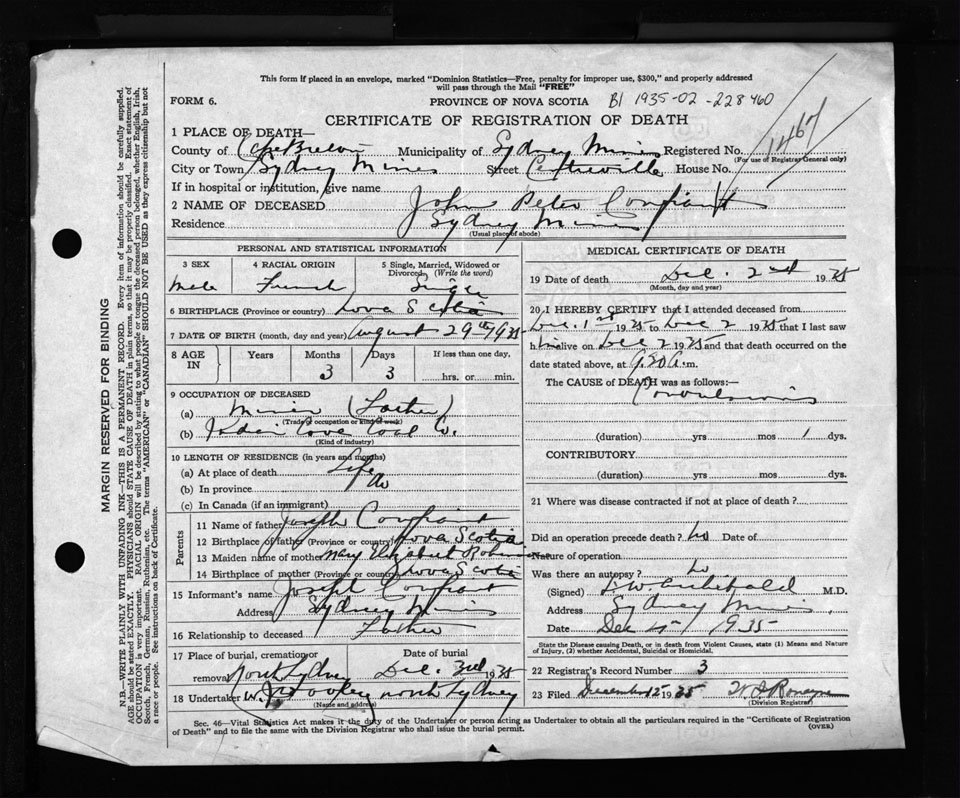 This form if placed in an envelope, marked "Dominion Statistics—Free, penalty for improper use, $300," and properly addressed
will pass through the Mail "FREE"
FORM 6.
PROVINCE OF NOVA SCOTIA B1 1935-02-228460
CERTIFICATE OF REGISTRATION OF DEATH
1467
1 PLACE OF DEATH—
County of Cape Breton Municipality of Sydney Mines Registered No.
(For use of Registrar General only)
City or Town Sydney Mines Street Centreville House No.
If in hospital or institution, give name
2 NAME OF DECEASED John Peter Confiant
Residence Sydney Mines
(Usual place of abode)
PERSONAL AND STATISTICAL INFORMATION
3 SEX 4 RACIAL ORIGIN 5 Single, Married, Widowed or Divorced (Write the word)
Male French Single
6 BIRTHPLACE (Province or country) Nova Scotia
7 DATE OF BIRTH (month, day and year) August 29th 1935
8 AGE IN Years Months Days If less than one day,
3 3 hrs. or min.
9 OCCUPATION OF DECEASED
(a) Miner (Father)
(Trade of occupation or kind of work)
(b) Cove Coal Co.
(Kind of industry)
10 LENGTH OF RESIDENCE (in years and months)
(a) At place of death Life
(b) In province
(c) In Canada (if an immigrant)
Parents
11 Name of father Joseph Confiant
12 Birthplace of father (Province or country) Nova Scotia
13 Maiden name of mother Mary Elizabeth
14 Birthplace of mother (Province or country) Nova Scotia
15 Informant's name Joseph Confiant
Address Sydney Mines
16 Relationship to deceased Father
17 Place of burial, cremation or removal Date of burial
North Sydney Dec. 3rd 1935
18 Undertaker North Sydney
(Name and address)
MEDICAL CERTIFICATE OF DEATH
19 Date of death Dec. 2nd 1935
(Month, day and year)
20 I HEREBY CERTIFY that I attended deceased from
Dec. 1st 1935 to Dec 2 1935 that I last saw
him alive on Dec 2 1935 and that death occurred on the
date stated above, at 9.30 A.m.
The CAUSE of DEATH was as follows:—
Convulsions
(duration) yrs mos 1 dys.
CONTRIBUTORY
(duration) yrs mos dys.
21 Where was disease contracted if not at place of death?
Did an operation precede death? No Date of
Nature of operation
Was there an autopsy? No
(Signed) Archibald M.D.
Address Sydney Mines
Date Dec 1935
State the Disease causing Death, or in death from Violent Causes, state (1) Means and Nature
of Injury, (2) whether Accidental, Suicidal or Homicidal.
22 Registrar's Record Number 3
23 Filed December 1935
(Division Registrar)
Sec. 46—Vital Statistics Act makes it the duty of the Undertaker or person acting as Undertaker to obtain all the particulars required in the "Certificate of Registration
of Death" and to file the same with the Division Registrar who shall issue the burial permit.
(OVER)
MARGIN RESERVED FOR BINDING
N.B.—WRITE PLAINLY WITH UNFADING INK—THIS IS A PERMANENT RECORD. Every item of information should be carefully supplied.
AGE should be stated EXACTLY. PHYSICIANS should STATE CAUSE OF DEATH in plain terms, so that it may be properly classified. Exact statement of
OCCUPATION is very important. RACIAL ORIGIN will be described by stating to what people or tongue the deceased person belonged, whether English, Irish,
Scotch, French, German, Russian, Ruthenian, etc. The terms "AMERICAN" or "CANADIAN" SHOULD NOT BE USED as they express citizenship but not
a race or people. See instructions on back of Certificate.